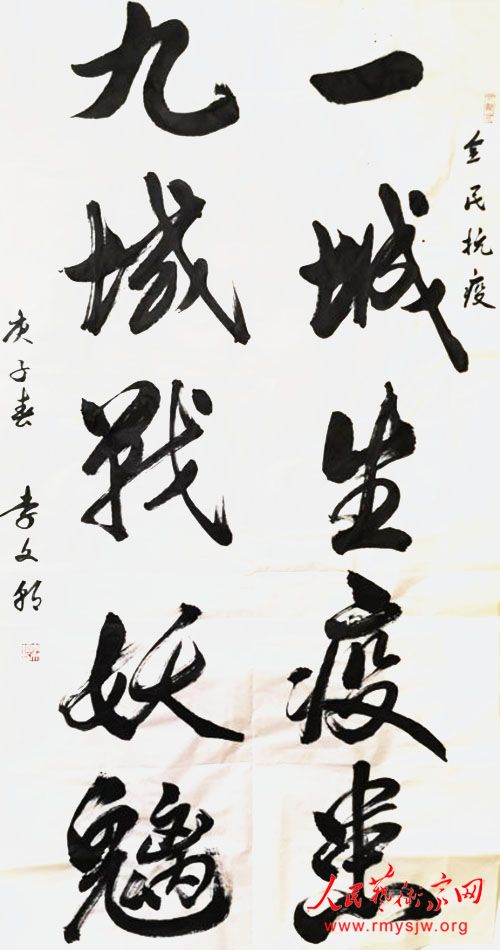 全民抗疫
一城生疫患
九域戰妖魑
庚子春 李文朝
人民藝術家网
www.rmysjw.org